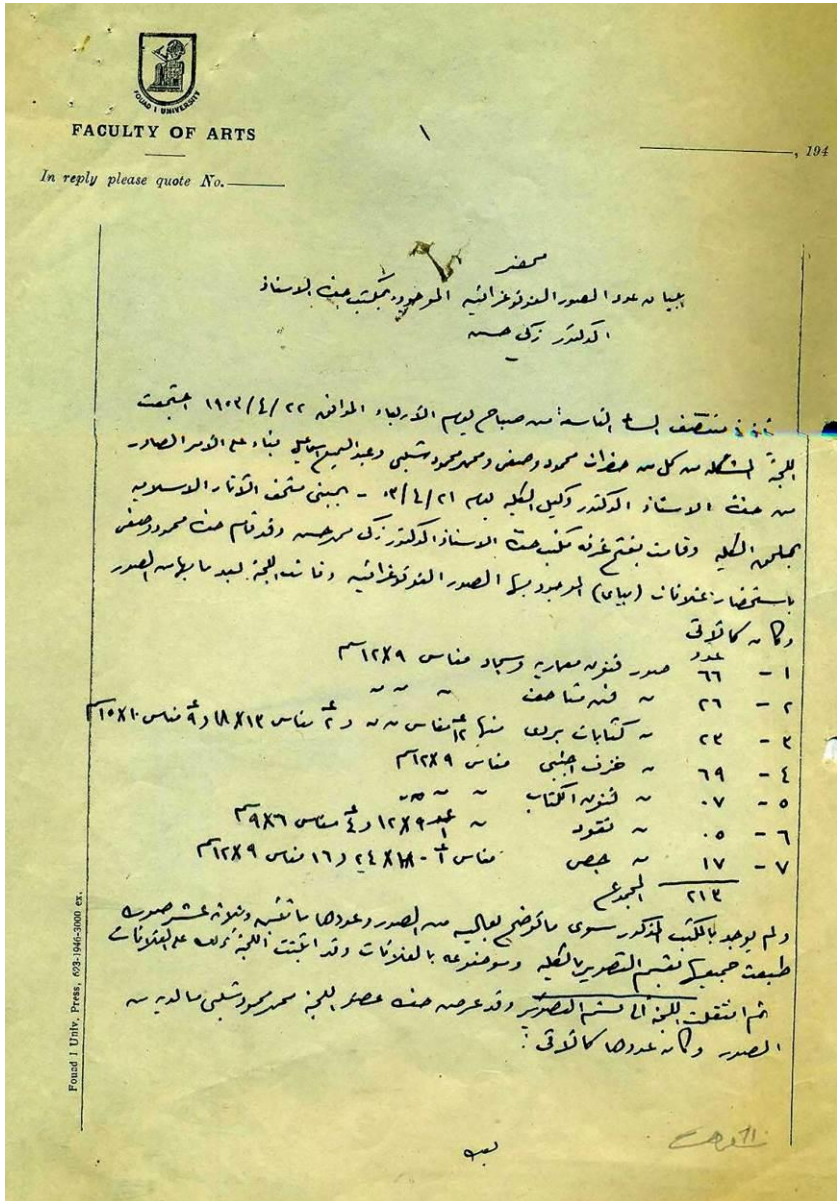 FOUAD I UNIVERSITY
FACULTY OF ARTS
١
, 194
In reply please quote No.
محضر
لبيان عدد الصور الفوتوغرافيه الموجوده بمكتب حضرة الاستاذ
الدكتور زكي حسن
منتصف الساعة التاسعة من صباح يوم الأربعاء الموافق ٢٢/٤/١٩٥٣ اجتمعت
اللجنة المشكله من كل من حضرات محمود وصفى ومحمد محمود شلبى وعبد السميع بناء على الأمر الصادر
من حضرة الاستاذ الدكتور وكيل الكليه يوم ٢١/٤/٥٣ - بمبنى متحف الآثار الاسلاميه
بملحق الكليه وقامت بفتح غرفة مكتب حضرة الاستاذ الدكتور زكى محمد حسن وقد قام حضرة محمود وصفى
باستحضار غلافات الموجود بها الصور الفوتوغرافيه وقامت اللجنة بعد ما بها من الصور
وكان كالآتى
عدد
١ - ٦٦ صور فنون معماريه وسجاد مقاس ٩×١٢ سم
٢ - ٢٦ " فن متاحف " " "
٣ - ٢٣ " كتابات بردى منها ١٢ مقاس " " و ٢ مقاس ١٣×١٨ و ٩ مقاس ١٠×١٥ سم
٤ - ٦٩ " خزف اجنبى مقاس ٩×١٢ سم
٥ - ٠٧ " فنون الكتاب " " "
٦ - ٠٥ " نقود " عدد ١ ٩×١٢ و ٤ مقاس ٦×٩ سم
٧ - ١٧ " جص مقاس ١ - ١٨×٢٤ و ١٦ مقاس ٩×١٢ سم
٢١٣ المجموع
ولم يوجد بالمكتب المذكور سوى ما توضح بعاليه من الصور وعددها مائتين وثلاثة عشر صورة
طبعت جميعها بقسم التصوير بالكليه وموضوعه بالغلافات وقد اثبتت اللجنة ذلك على الغلافات
ثم انتقلت اللجنة الى قسم التصوير وقد عرض حضرة عضو اللجنة محمد محمود شلبى ما لديه من
الصور وكان عددها كالآتى :
بعده
Fouad I Univ. Press, 623-1946-3000 ex.